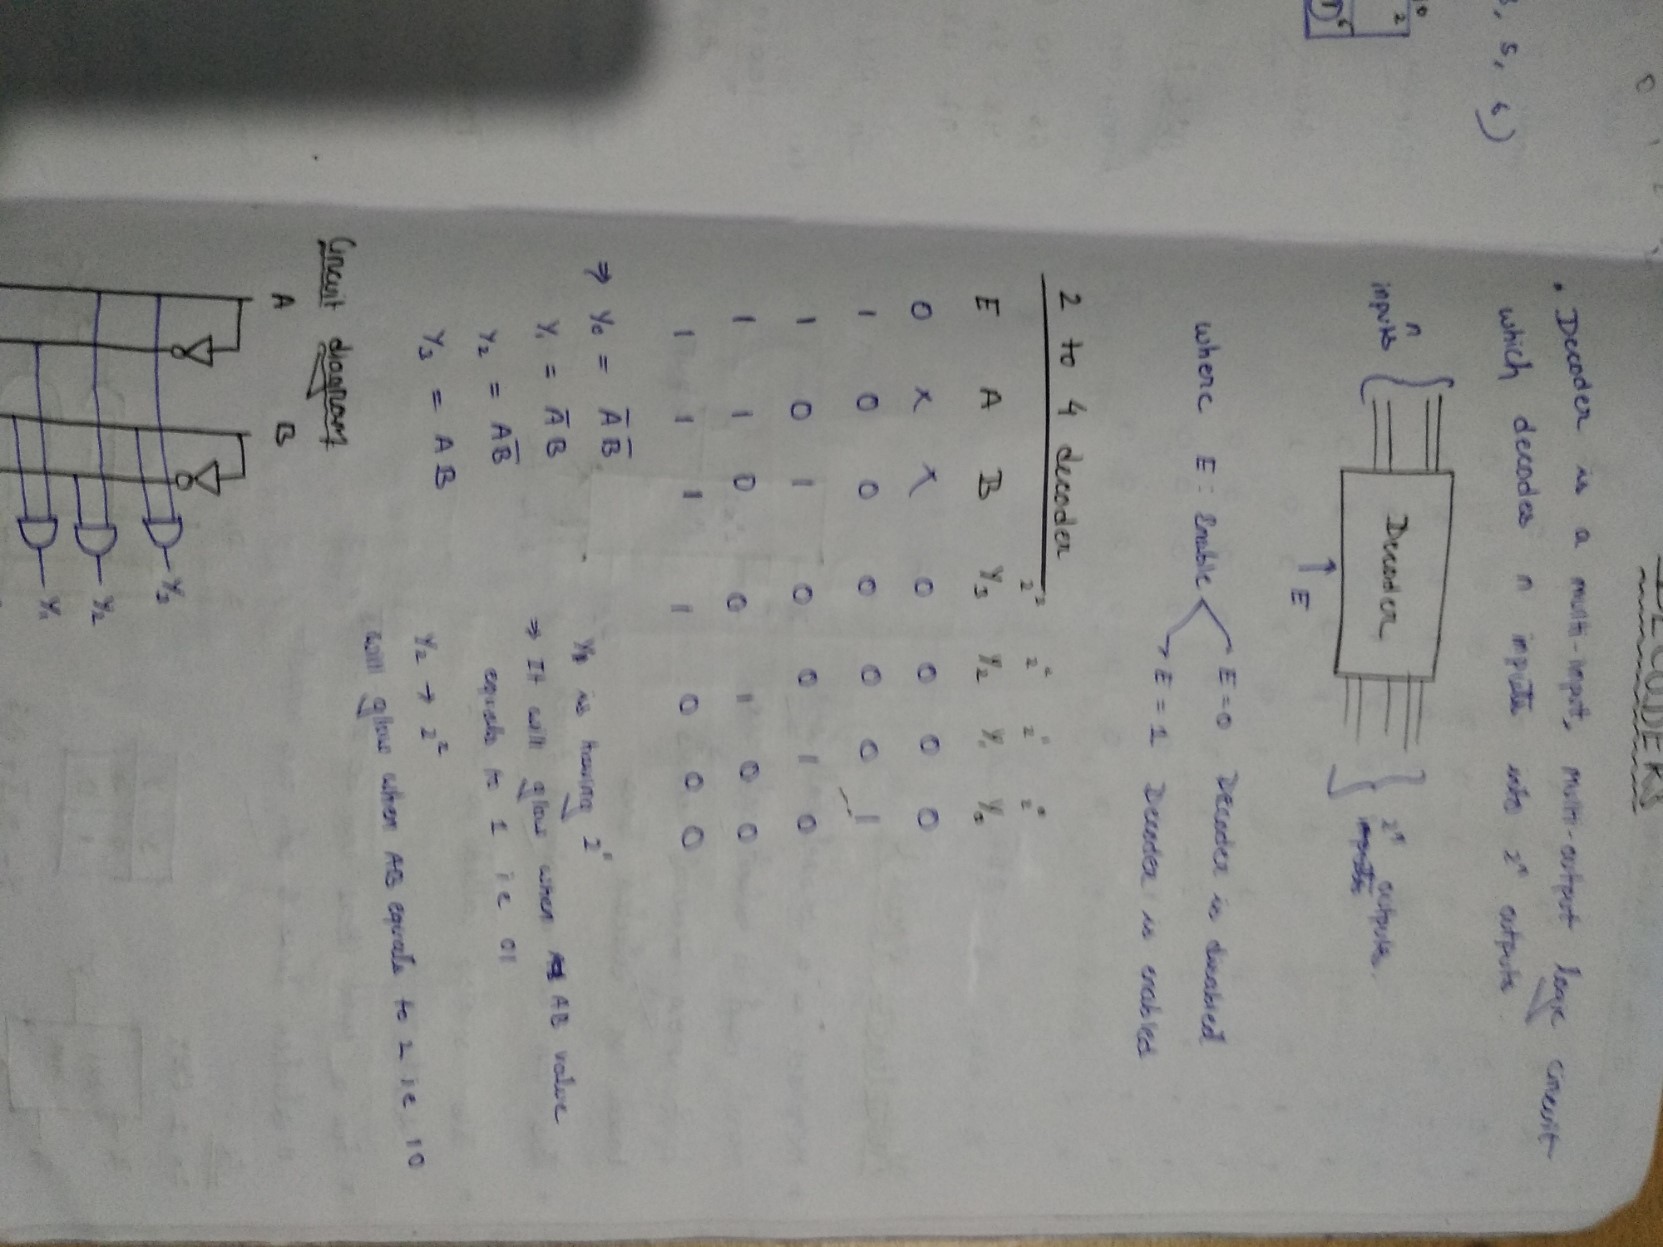 3, 5, 6)
10
2
6
DECODERS
. Decoder is a multi-input, multi-output logic circuit
which decodes n inputs into 2ⁿ outputs
n
inputs
Decoder
2ⁿ outputs.
↑ E
where E : Enable
E=0 Decoder is disabled
→ E = 1 Decoder is enabled
2 to 4 decoder
2³ 2² 2¹ 2⁰
E A B Y₃ Y₂ Y₁ Y₀
0 X X 0 0 0 0
1 0 0 0 0 0 1
1 0 1 0 0 1 0
1 1 0 0 1 0 0
1 1 1 1 0 0 0
⇒ Y₀ = A̅ B̅
Y₁ = A̅ B
Y₂ = A B̅
Y₃ = A B
is having 2¹
⇒ It will glow when AB value
equals to 1 i.e 01
Y₂ → 2²
will glow when AB equals to 2 i.e 10
Circuit diagram
A B
Y₃
Y₂
Y₁